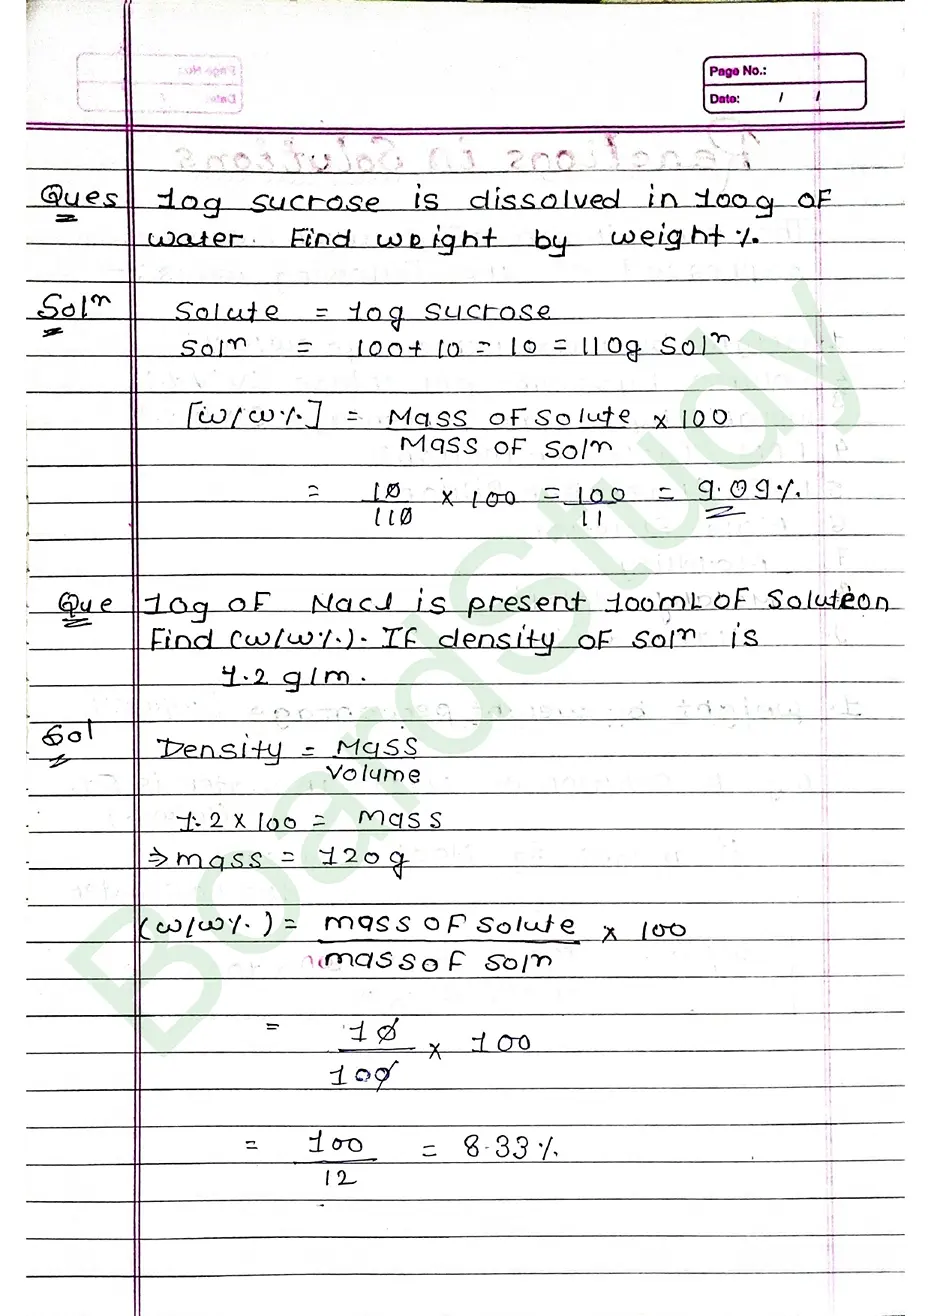 Page No.:
Date: / /
Ques 10g sucrose is dissolved in 100g of
water. Find weight by weight %.
Solⁿ Solute = 10g sucrose
Solⁿ = 100+ 10 = 10 = 110g Solⁿ
[w/w%] = Mass of Solute × 100
Mass of Solⁿ
= 10 × 100 = 100 = 9.09%
110 11
Que 10g of Nacl is present 100mL of Solution
Find (w/w%). If density of Solⁿ is
1.2 g/m.
Sol Density = Mass
Volume
1.2 × 100 = mass
⇒ mass = 120g
(w/w%.) = mass of solute × 100
mass of soln
= 10 × 100
100
= 100 = 8.33%
12
BoardStudy